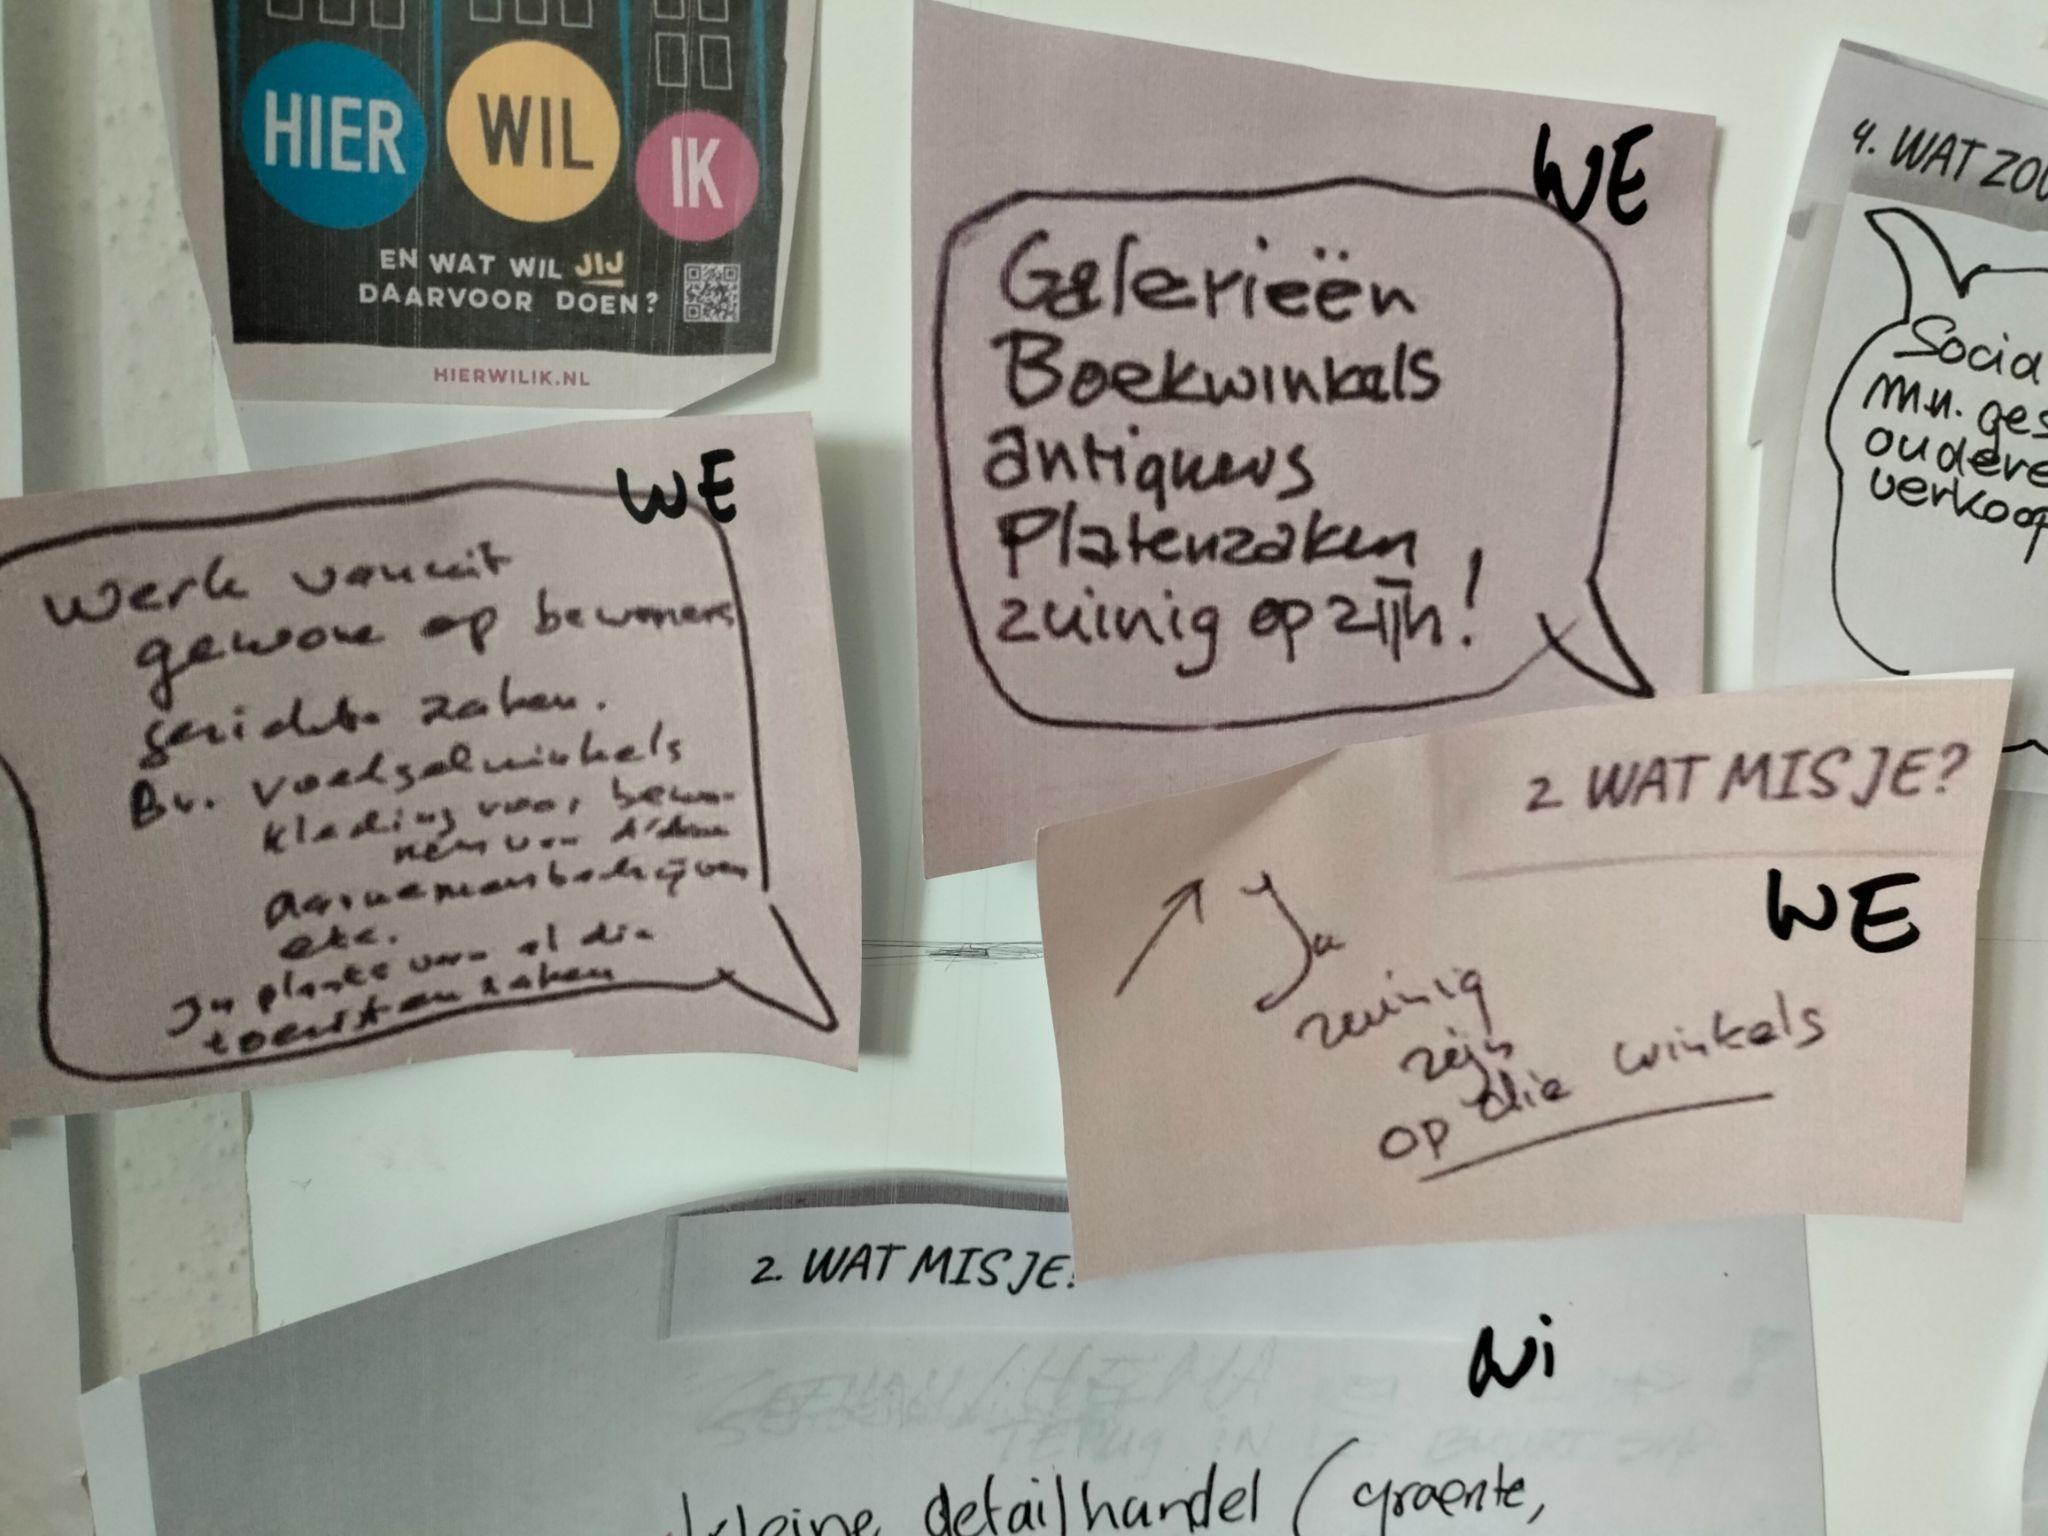 HIER WIL IK
EN WAT WIL JIJ
DAARVOOR DOEN?
HIERWILIK.NL
WE
Galerieën
Boekwinkels
antiquers
Platenzaken
zuinig op zijn!
4. WAT ZOU
Socia
m.n. ges
oudere
verkoop
WE
Werk vanuit
gewone op bewoners
gerichte zaken.
Bv. voedselwinkels
kleding voor bewo-
ners van A'dam
aannemersbedrijven
etc.
In plaats van al die
toeristenzaken
2 WAT MIS JE?
WE
Ja
zuinig
zijn
op die winkels
2. WAT MIS JE?
Ni
HEMA
TERUG IN DE BUURT
kleine detailhandel (groente,